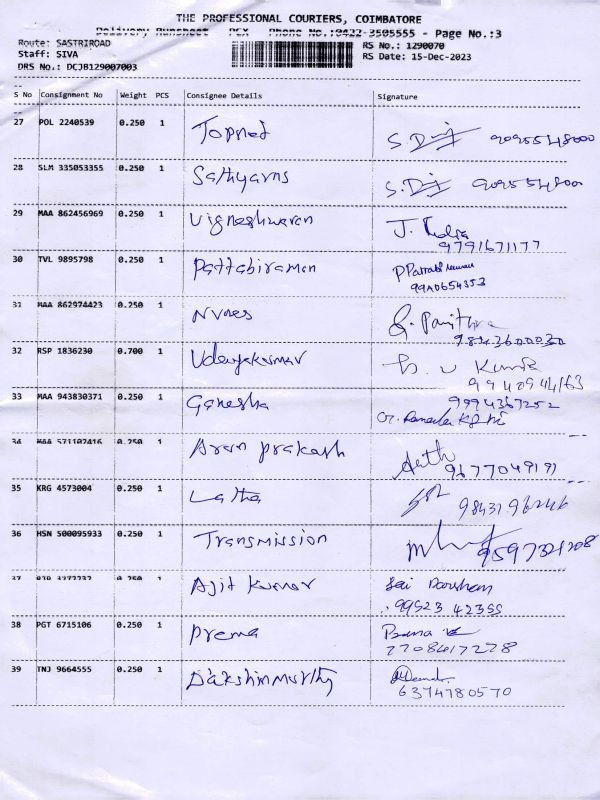 THE PROFESSIONAL COURIERS, COIMBATORE
Delivery Runsheet PCX Phone No.:0422-3505555 - Page No.:3
Route: SASTRIROAD
Staff: SIVA
DRS No.: DCJB129007003
RS No.: 1290070
RS Date: 15-Dec-2023
S No Consignment No Weight PCS Consignee Details Signature
27 POL 2240539 0.250 1 Topnet
28 SLM 335053355 0.250 1 Sathyarns
29 MAA 862456969 0.250 1 Vigneshwaran
9791671177
30 TVL 9895798 0.250 1 Pattabiraman
31 MAA 862974423 0.250 1
9843600030
32 RSP 1836230 0.700 1 Udayakumar
33 MAA 943830371 0.250 1 Ganesha 9994367252
34 MAA 571102416 0.250 1 Arun prakash
9677049191
35 KRG 4573004 0.250 1 Latha 9843196246
36 HSN 500095933 0.250 1 Transmission
37 0.250 1 Ajit Kumar Sai Darshan
99523 42355
38 PGT 6715106 0.250 1 Prema
7708617278
39 TNJ 9664555 0.250 1 Dakshinmurthy
6374780570